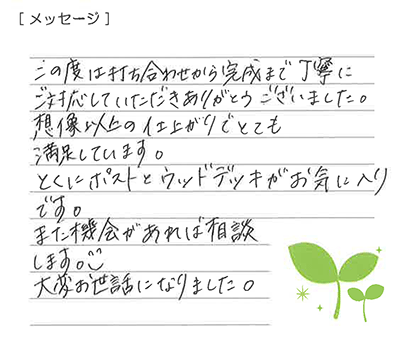 [ メッセージ ]
この度は打ち合わせから完成まで丁寧に
ご対応していただきありがとうございました。
想像以上の仕上がりでとても
満足しています。
とくにポストとウッドデッキがお気に入り
です。
また機会があれば相談
します。
大変お世話になりました。